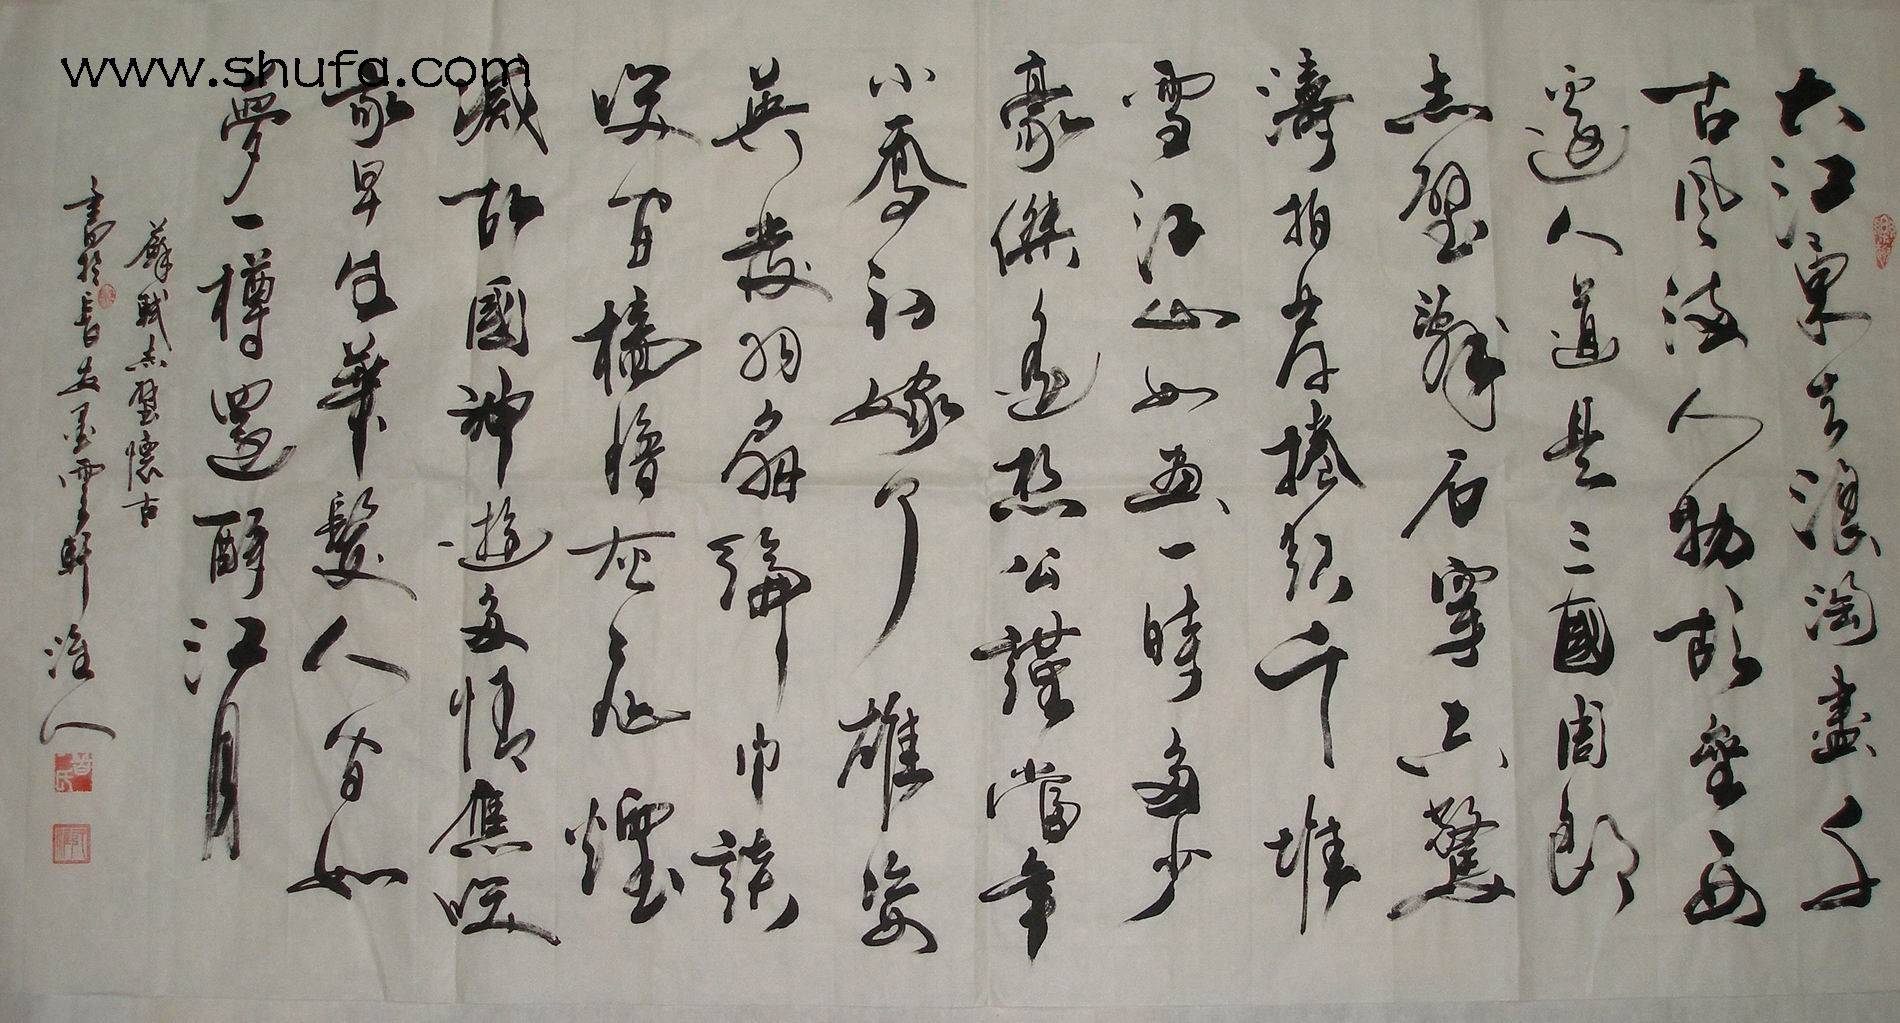 www.shufa.com
大江東去浪淘盡千
古風流人物故壘西
邊人道是三國周郎
赤壁亂石穿空驚
濤拍岸捲起千堆
雪江山如畫一時多少
豪傑遙想公謹當年
小喬初嫁了雄姿
英發羽扇綸巾談
咲間檣櫓灰飛煙
滅故國神遊多情應咲
我早生華髮人間如
夢一樽還酹江月
蘇軾赤壁懷古
書於長安墨雲軒淮人